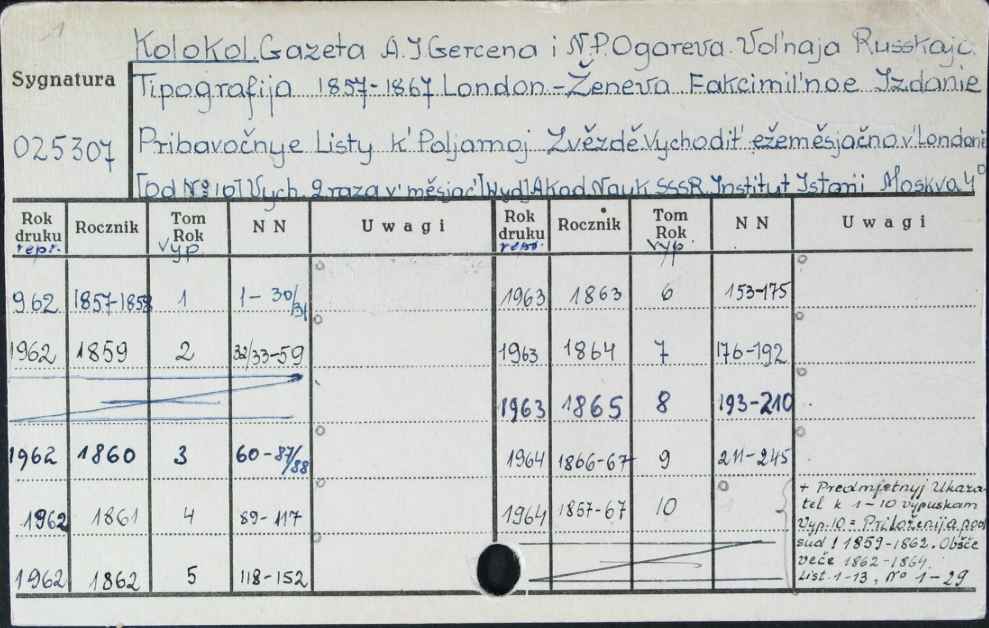 1
Kolokol. Gazeta A.I Gercena i N.P. Ogareva. Vol'naja Russkaja.
Sygnatura
Tipografija 1857-1867 London-Ženeva Fakcimil'noe Izdanie
025307
Pribavočnye Listy k' Poljarnoj Zvězdě Vychodit' ežeměsjačno v' Londoně
[od No 10] Vych. 2 raza v' měsjac' [Wyd] Akad Nauk SSSR. Institut Istorii Moskva 4°
Rok druku repr. Rocznik Tom Rok vyp. NN Uwagi Rok druku repr. Rocznik Tom Rok vyp. NN Uwagi
962 1857-1858 1 1-30/31 1963 1863 6 153-175
1962 1859 2 32/33-59 1963 1864 7 176-192
1963 1865 8 193-210
1962 1860 3 60-87/88 1964 1866-67 9 211-245
1962 1861 4 89-117 1964 1857-67 10 + Predmjetnyj Ukaza-
tel k 1-10 vypuskam
Vyp. 10 = Priloženija pod
sud! 1859-1862. Obščee
veče 1862-1864.
List. 1-13, No 1-29
1962 1862 5 118-152